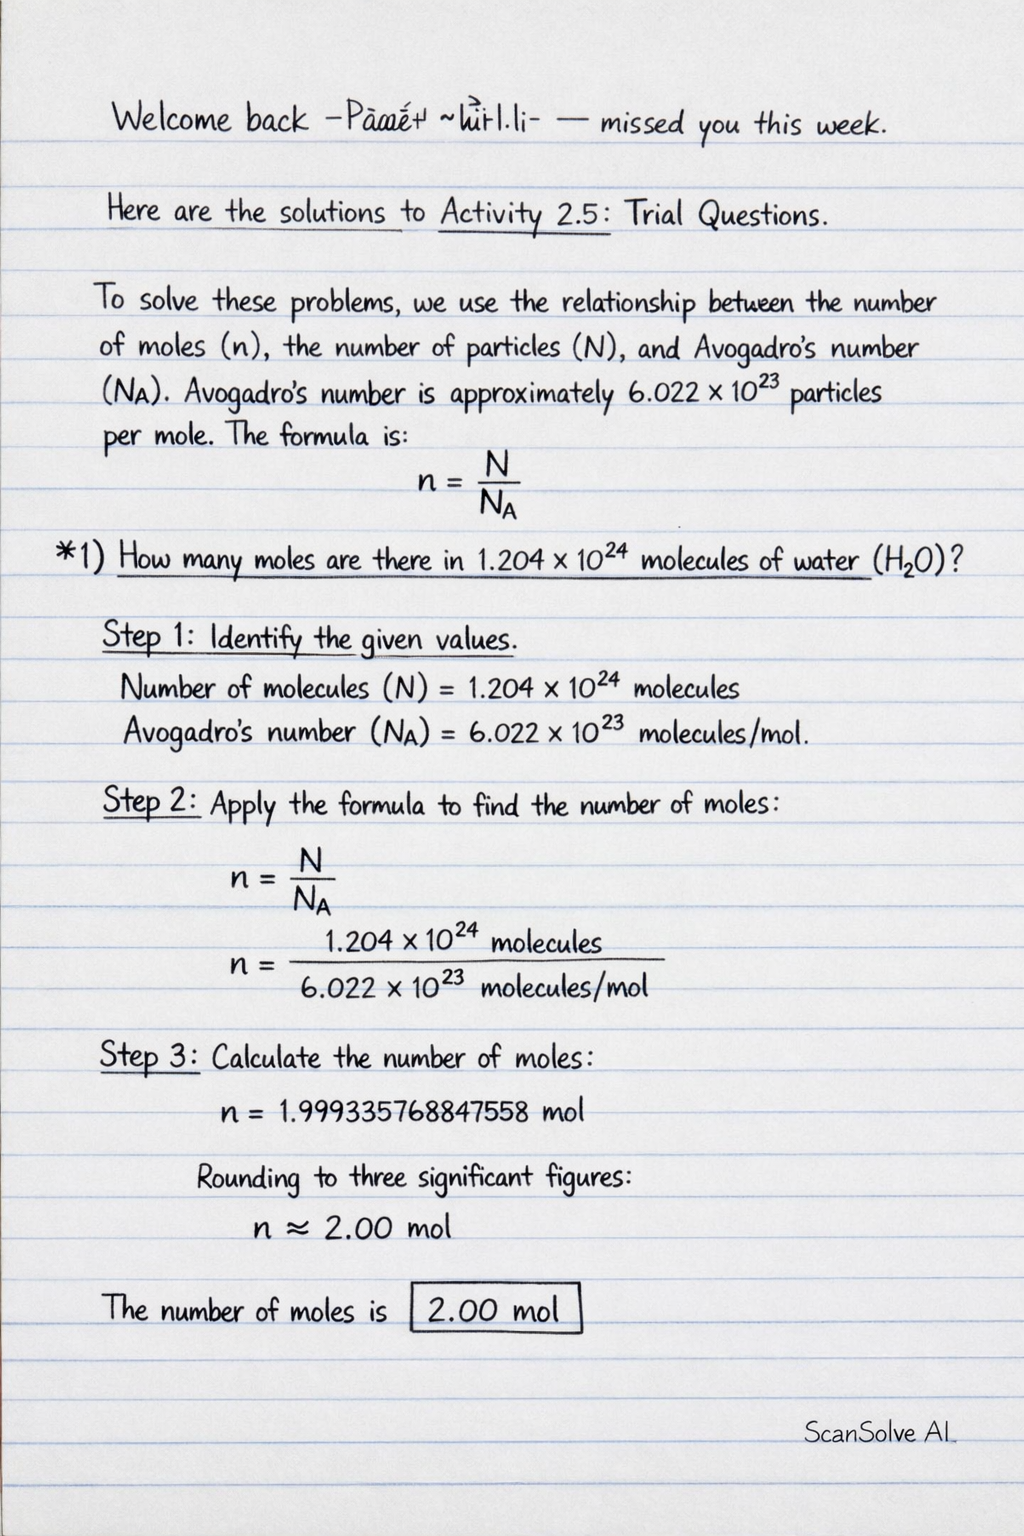 Welcome back — missed you this week.
Here are the solutions to Activity 2.5: Trial Questions.
To solve these problems, we use the relationship between the number
of moles (n), the number of particles (N), and Avogadro's number
(Nᴀ). Avogadro's number is approximately 6.022 × 10²³ particles
per mole. The formula is:
n = N / Nᴀ
*1) How many moles are there in 1.204 × 10²⁴ molecules of water (H₂O)?
Step 1: Identify the given values.
Number of molecules (N) = 1.204 × 10²⁴ molecules
Avogadro's number (Nᴀ) = 6.022 × 10²³ molecules/mol.
Step 2: Apply the formula to find the number of moles:
n = N / Nᴀ
n = 1.204 × 10²⁴ molecules / 6.022 × 10²³ molecules/mol
Step 3: Calculate the number of moles:
n = 1.999335768847558 mol
Rounding to three significant figures:
n ≈ 2.00 mol
The number of moles is 2.00 mol
ScanSolve AI